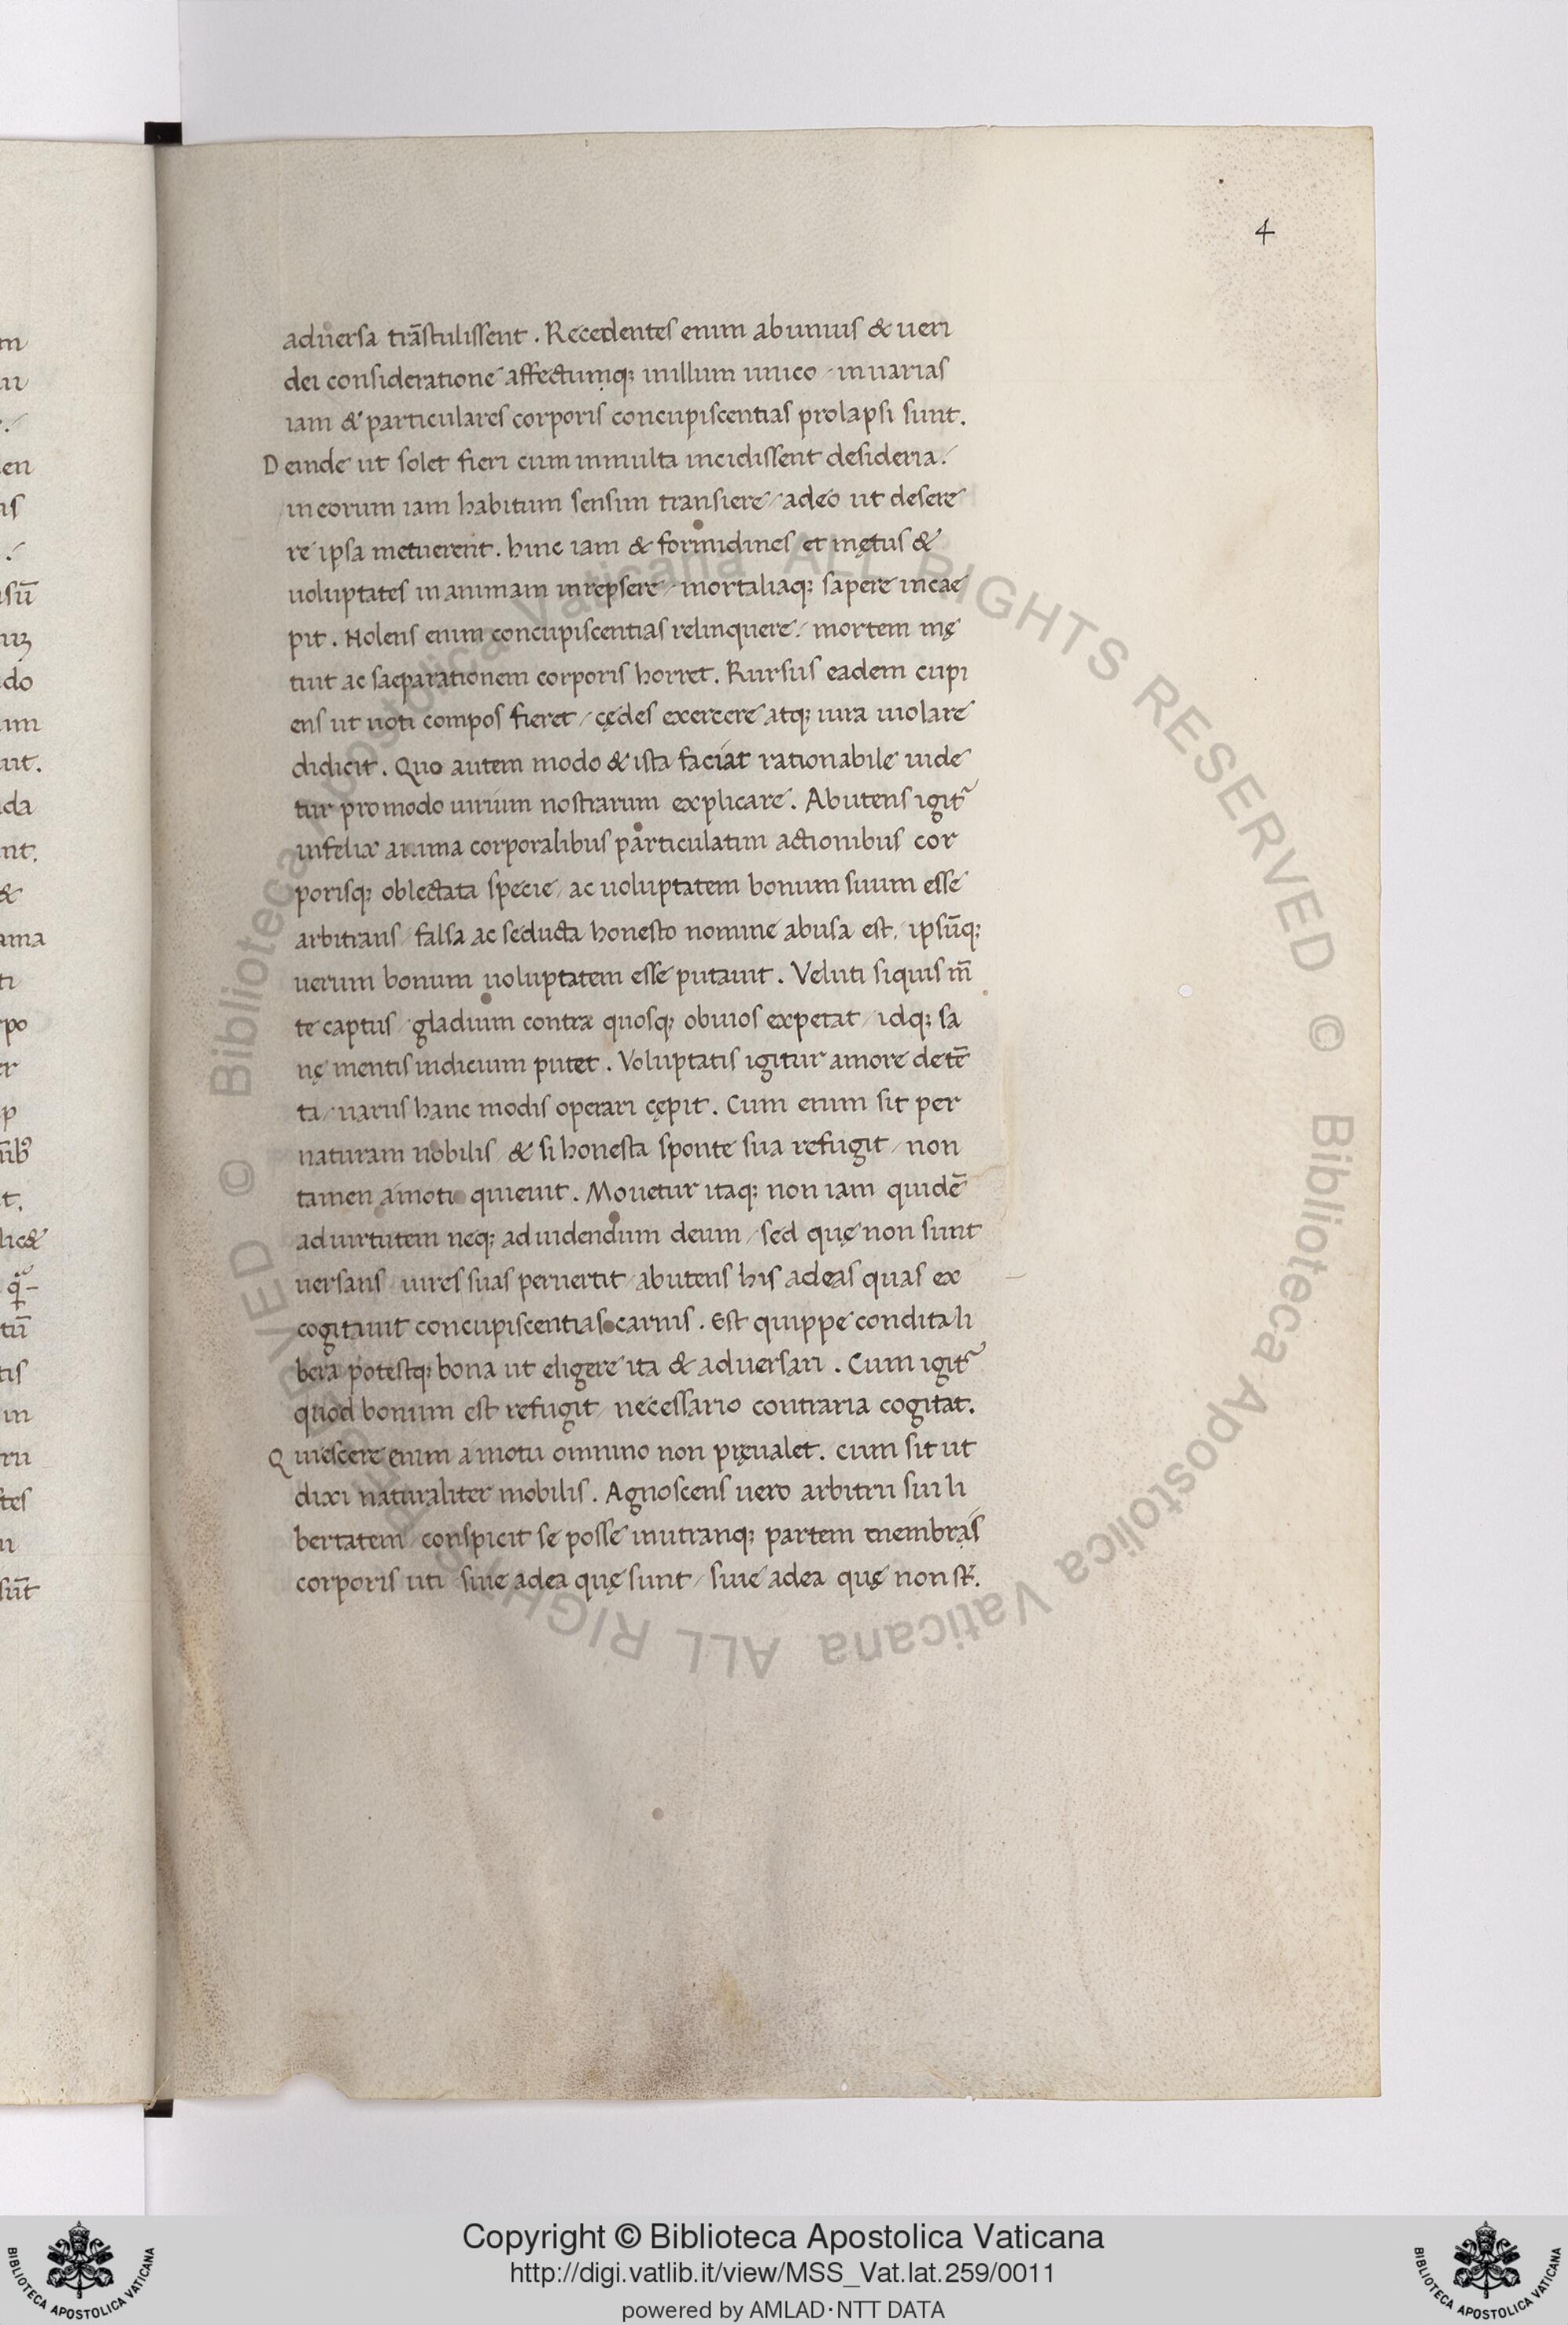 4
aduersa trāstulissent . Recedentes enim ab unius & ueri
dei consideratione affectumq; in illum unico / in uarias
iam & particulares corporis concupiscentias prolapsi sunt.
Deinde ut solet fieri cum in multa incidissent desideria /
in eorum iam habitum sensim transiere / adeo ut desere
re ipsa metuerent . hinc iam & formidines et mętus &
uoluptates in animam inrepsere / mortaliaq; sapere incae
pit . Nolens enim concupiscentias relinquere / mortem mę
tuit ac saeparationem corporis horret . Rursus eadem cupi
ens ut uoti compos fieret / cędes exercere atq; iura uiolare
didicit . Quo autem modo & ista faciat rationabile uide
tur pro modo uirium nostrarum explicare . Abutens igit᷑
infelix anima corporalibus particulatim actionibus cor
porisq; oblectata specie / ac uoluptatem bonum suum esse
arbitrans / falsa ac seducta honesto nomine abusa est / ipsūq;
uerum bonum uoluptatem esse putauit . Veluti siquis m̄
te captus / gladium contra quosq; obuios expetat / idq; sa
nę mentis indicium putet . Voluptatis igitur amore detē
ta / uariis hanc modis operari cępit . Cum enim sit per
naturam nobilis / & si honesta sponte sua refugit / non
tamen a motu quieuit . Mouetur itaq; non iam quidē
ad uirtutem neq; ad uidendum deum / sed quę non sunt
uersans / uires suas peruertit / abutens his ad eas quas ex
cogitauit concupiscentias carnis . Est quippe condita li
bera potestq; bona ut eligere ita & aduersari . Cum igit᷑
quod bonum est refugit / necessario contraria cogitat.
Quiescere enim a motu omnino non pręualet . cum sit ut
dixi naturaliter mobilis . Agnoscens uero arbitrii sui li
bertatem / conspicit se posse in utranq; partem membras
corporis uti / siue ad ea quę sunt / siue ad ea quę non st̄.
Copyright © Biblioteca Apostolica Vaticana
http://digi.vatlib.it/view/MSS_Vat.lat.259/0011
powered by AMLAD·NTT DATA